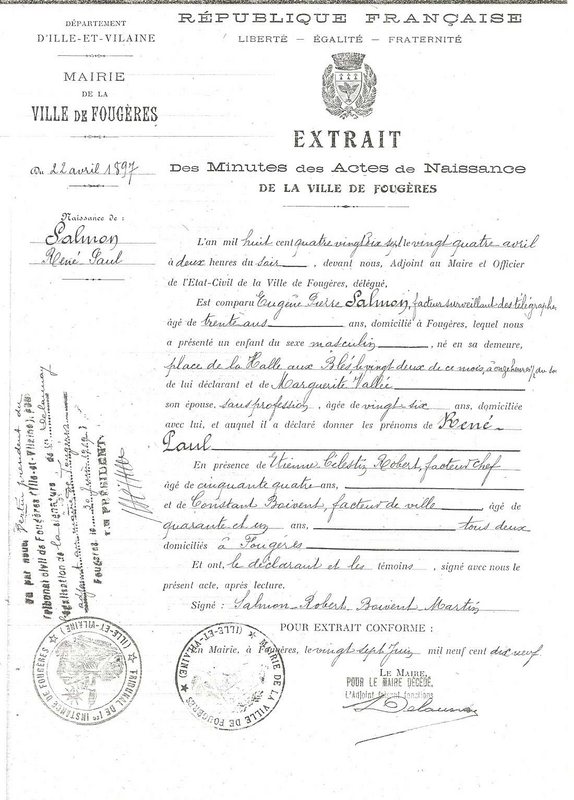 DÉPARTEMENT
D'ILLE-ET-VILAINE
MAIRIE
DE LA
VILLE DE FOUGÈRES
Du 22 avril 1897
Naissance de :
Salmon
René Paul
RÉPUBLIQUE FRANÇAISE
LIBERTÉ — ÉGALITÉ — FRATERNITÉ
EXTRAIT
Des Minutes des Actes de Naissance
DE LA VILLE DE FOUGÈRES
L'an mil huit cent quatre vingt dix sept le vingt quatre avril
à deux heures du soir, devant nous, Adjoint au Maire et Officier
de l'Etat-Civil de la Ville de Fougères, délégué.
Est comparu Eugène Pierre Salmon, facteur surveillant des télégraphes
âgé de trente ans ans, domicilié à Fougères, lequel nous
a présenté un enfant du sexe masculin, né en sa demeure,
place de la Halle aux Blés, le vingt deux de ce mois, à onze heures du
de lui déclarant et de Marguerite Vallée
son épouse, sans profession, âgée de vingt-six ans, domiciliée
avec lui, et auquel il a déclaré donner les prénoms de René
Paul
En présence de Etienne Célestin Robert, facteur chef
âgé de cinquante quatre ans,
et de Constant Boivent, facteur de ville âgé de
quarante et un ans, tous deux
domiciliés à Fougères
Et ont, le déclarant et les témoins, signé avec nous le
présent acte, après lecture.
Signé : Salmon, Robert, Boivent, Martin
POUR EXTRAIT CONFORME :
En Mairie, à Fougères, le vingt sept Juin mil neuf cent dix neuf.
LE MAIRE,
POUR LE MAIRE DÉCÉDÉ,
L'Adjoint faisant fonctions
Delaunay
Vu par nous président du
Tribunal civil de Fougères (Ille-et-Vilaine), pour
légalisation de la signature de Mr Delaunay
adjoint au maire de Fougères
Fougères, le
LE PRÉSIDENT
TRIBUNAL DE 1re INSTANCE DE FOUGÈRES ★ (ILLE-ET-VILAINE) ★
MAIRIE DE LA VILLE DE FOUGÈRES ★ (ILLE-ET-VILAINE) ★